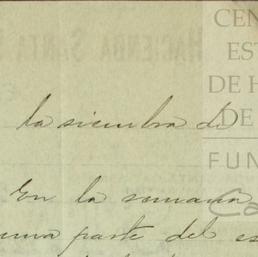 CEN
HACIENDA SANTA
EST
DE H
la siembra de
DE
FUN
En la semana
una parte del es